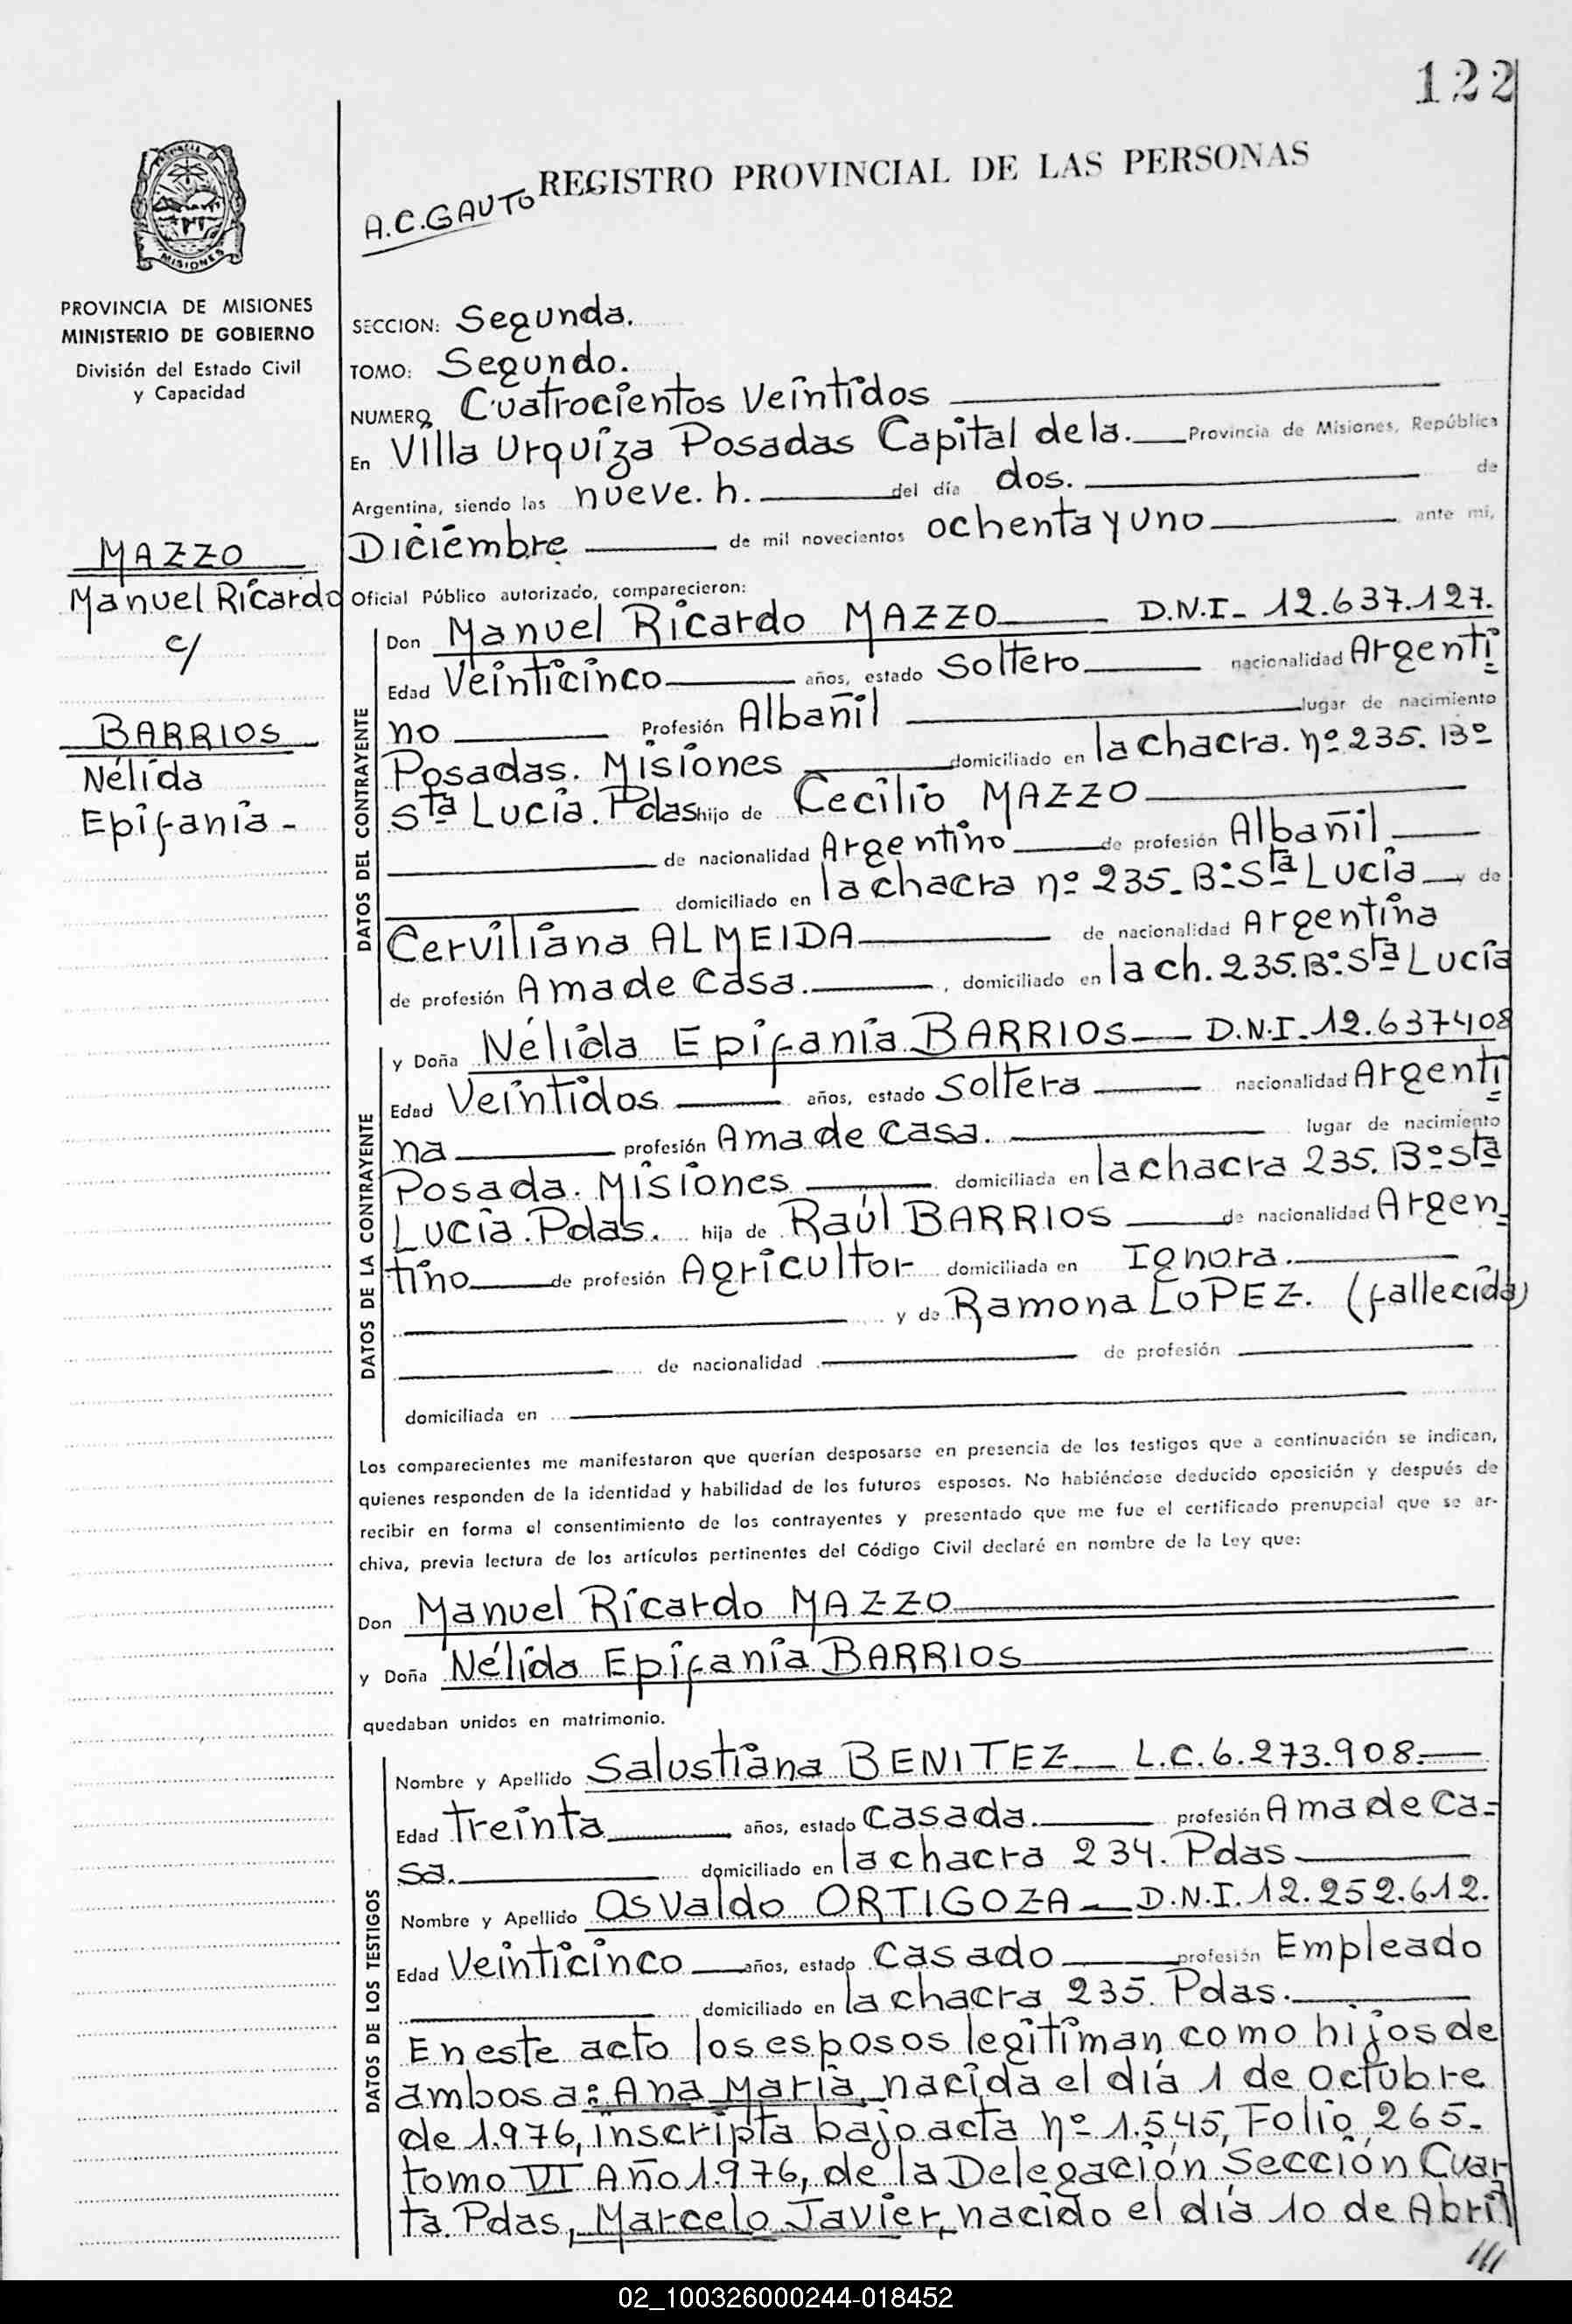 122
REGISTRO PROVINCIAL DE LAS PERSONAS
A.C. GAUTO
PROVINCIA DE MISIONES
MISIONES
PROVINCIA DE MISIONES
MINISTERIO DE GOBIERNO
División del Estado Civil
y Capacidad
MAZZO
Manuel Ricardo
c/
BARRIOS
Nélida
Epifania -
SECCION: Segunda.
TOMO: Segundo.
NUMERO Cuatrocientos Veintidos
En Villa Urquiza Posadas Capital de la. Provincia de Misiones, República
Argentina, siendo las nueve. h. del día dos. de
Diciembre de mil novecientos ochenta y uno ante mi,
Oficial Público autorizado, comparecieron:
DATOS DEL CONTRAYENTE
Don Manuel Ricardo MAZZO D.N.I- 12.637.127.
Edad Veinticinco años, estado Soltero nacionalidad Argenti
no Profesión Albañil lugar de nacimiento
Posadas. Misiones domiciliado en la chacra. nº 235. Bº
Sta Lucía. Pdas hijo de Cecilio MAZZO
de nacionalidad Argentino de profesión Albañil
domiciliado en la chacra nº 235. Bº Sta Lucía y de
Cerviliana ALMEIDA de nacionalidad Argentina
de profesión Ama de Casa. , domiciliado en la ch. 235. Bº. Sta Lucía
DATOS DE LA CONTRAYENTE
y Doña Nélida Epifania BARRIOS D.N.I. 12.637408
Edad Veintidos años, estado Soltera nacionalidad Argenti
na profesión Ama de Casa. lugar de nacimiento
Posada. Misiones domiciliada en la chacra 235. Bº Sta
Lucía. Pdas. hija de Raúl BARRIOS de nacionalidad Argen
tino de profesión Agricultor domiciliada en Ignora.
y de Ramona LOPEZ. (fallecida)
de nacionalidad de profesión
domiciliada en
Los comparecientes me manifestaron que querían desposarse en presencia de los testigos que a continuación se indican,
quienes responden de la identidad y habilidad de los futuros esposos. No habiéndose deducido oposición y después de
recibir en forma el consentimiento de los contrayentes y presentado que me fue el certificado prenupcial que se ar-
chiva, previa lectura de los artículos pertinentes del Código Civil declaré en nombre de la Ley que:
Don Manuel Ricardo MAZZO
y Doña Nélida Epifania BARRIOS
quedaban unidos en matrimonio.
DATOS DE LOS TESTIGOS
Nombre y Apellido Salustiana BENITEZ L.C. 6.273.908.
Edad treinta años, estado Casada. profesión Ama de Ca=
sa. domiciliado en la chacra 234. Pdas
Nombre y Apellido Osvaldo ORTIGOZA D.N.I. 12.252.612.
Edad Veinticinco años, estado Casado profesión Empleado
domiciliado en la chacra 235. Pdas.
En este acto los esposos legitiman como hijos de
ambos a: Ana María, nacida el día 1 de octubre
de 1.976, inscripta bajo acta nº 1.545, Folio 265-
tomo VI Año 1.976, de la Delegación Sección Cuar
ta. Pdas, Marcelo Javier, nacido el día 10 de Abril
///
02_100326000244-018452